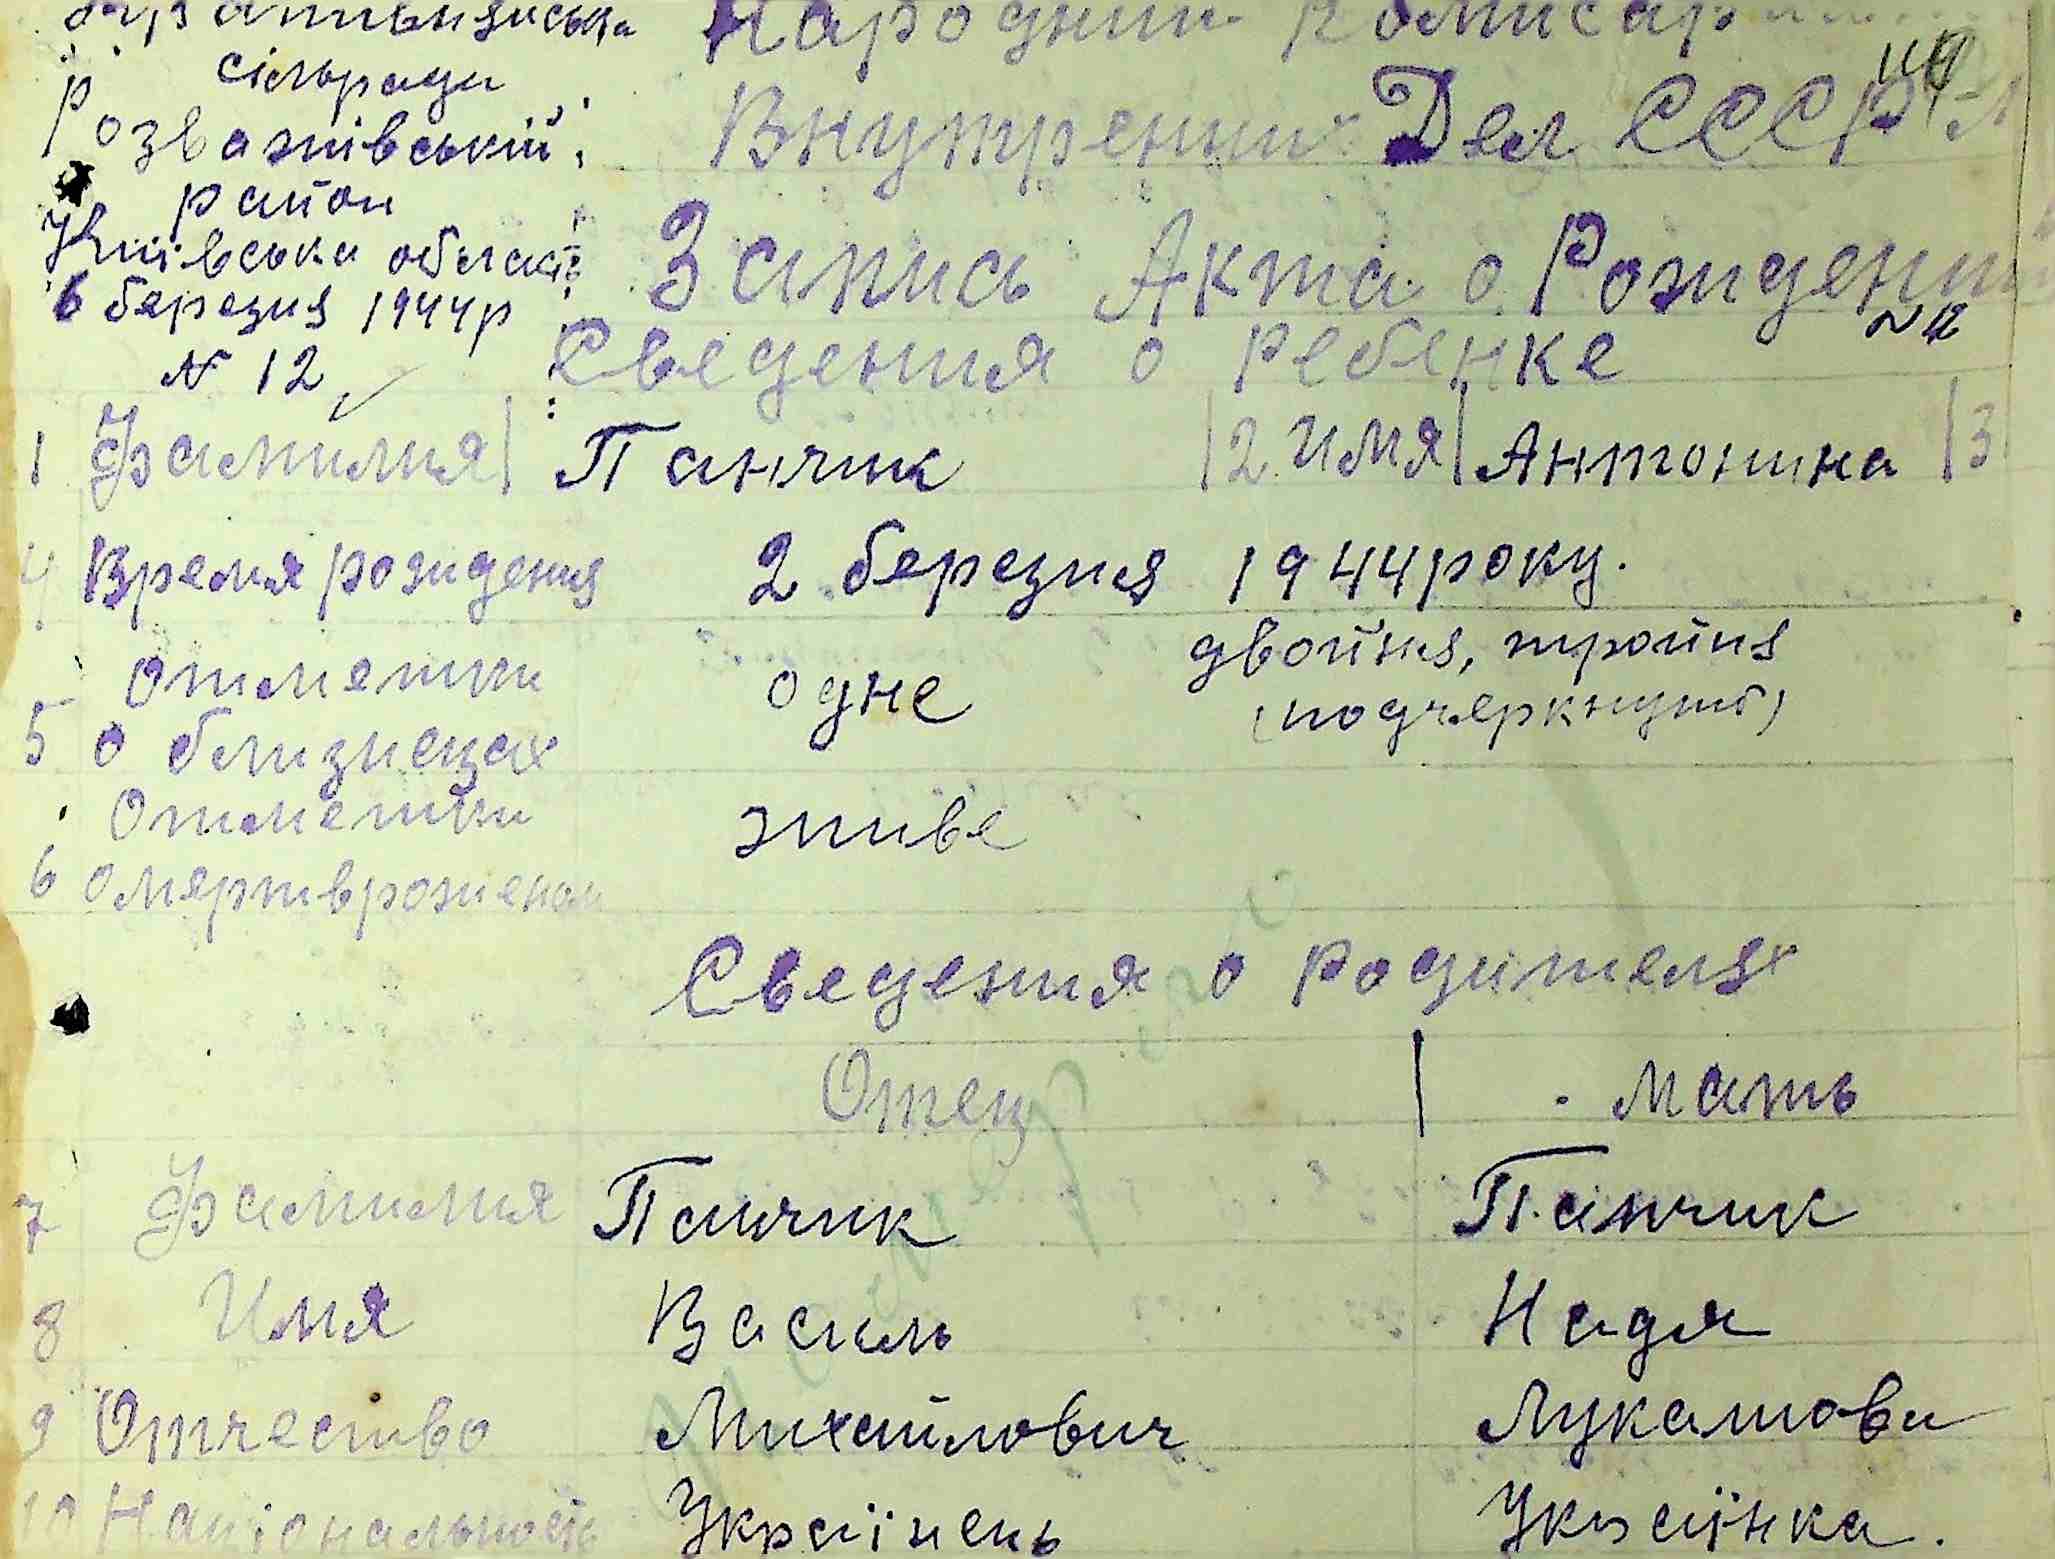 сільради
Розважівській
район
Київська область
6 березня 1944р
№ 12
Народний Комисар
Внутрених Дел СССР
Запись Акта о Рождении
№ 12
Сведения о ребенке
1 Фамилия Панчик 2 Имя Антонина 3
4 Время рождения 2 березня 1944 року.
5 Отметки о близнецах одне двойня, тройня (подчеркнуть)
6 Отметки о мертврожденом живе
Сведения о родителях
Отец мать
7 Фамилия Панчик Панчик
8 Имя Василь Надя
9 Отчество Михайлович Лукашови
10 Національность Українець Українка.